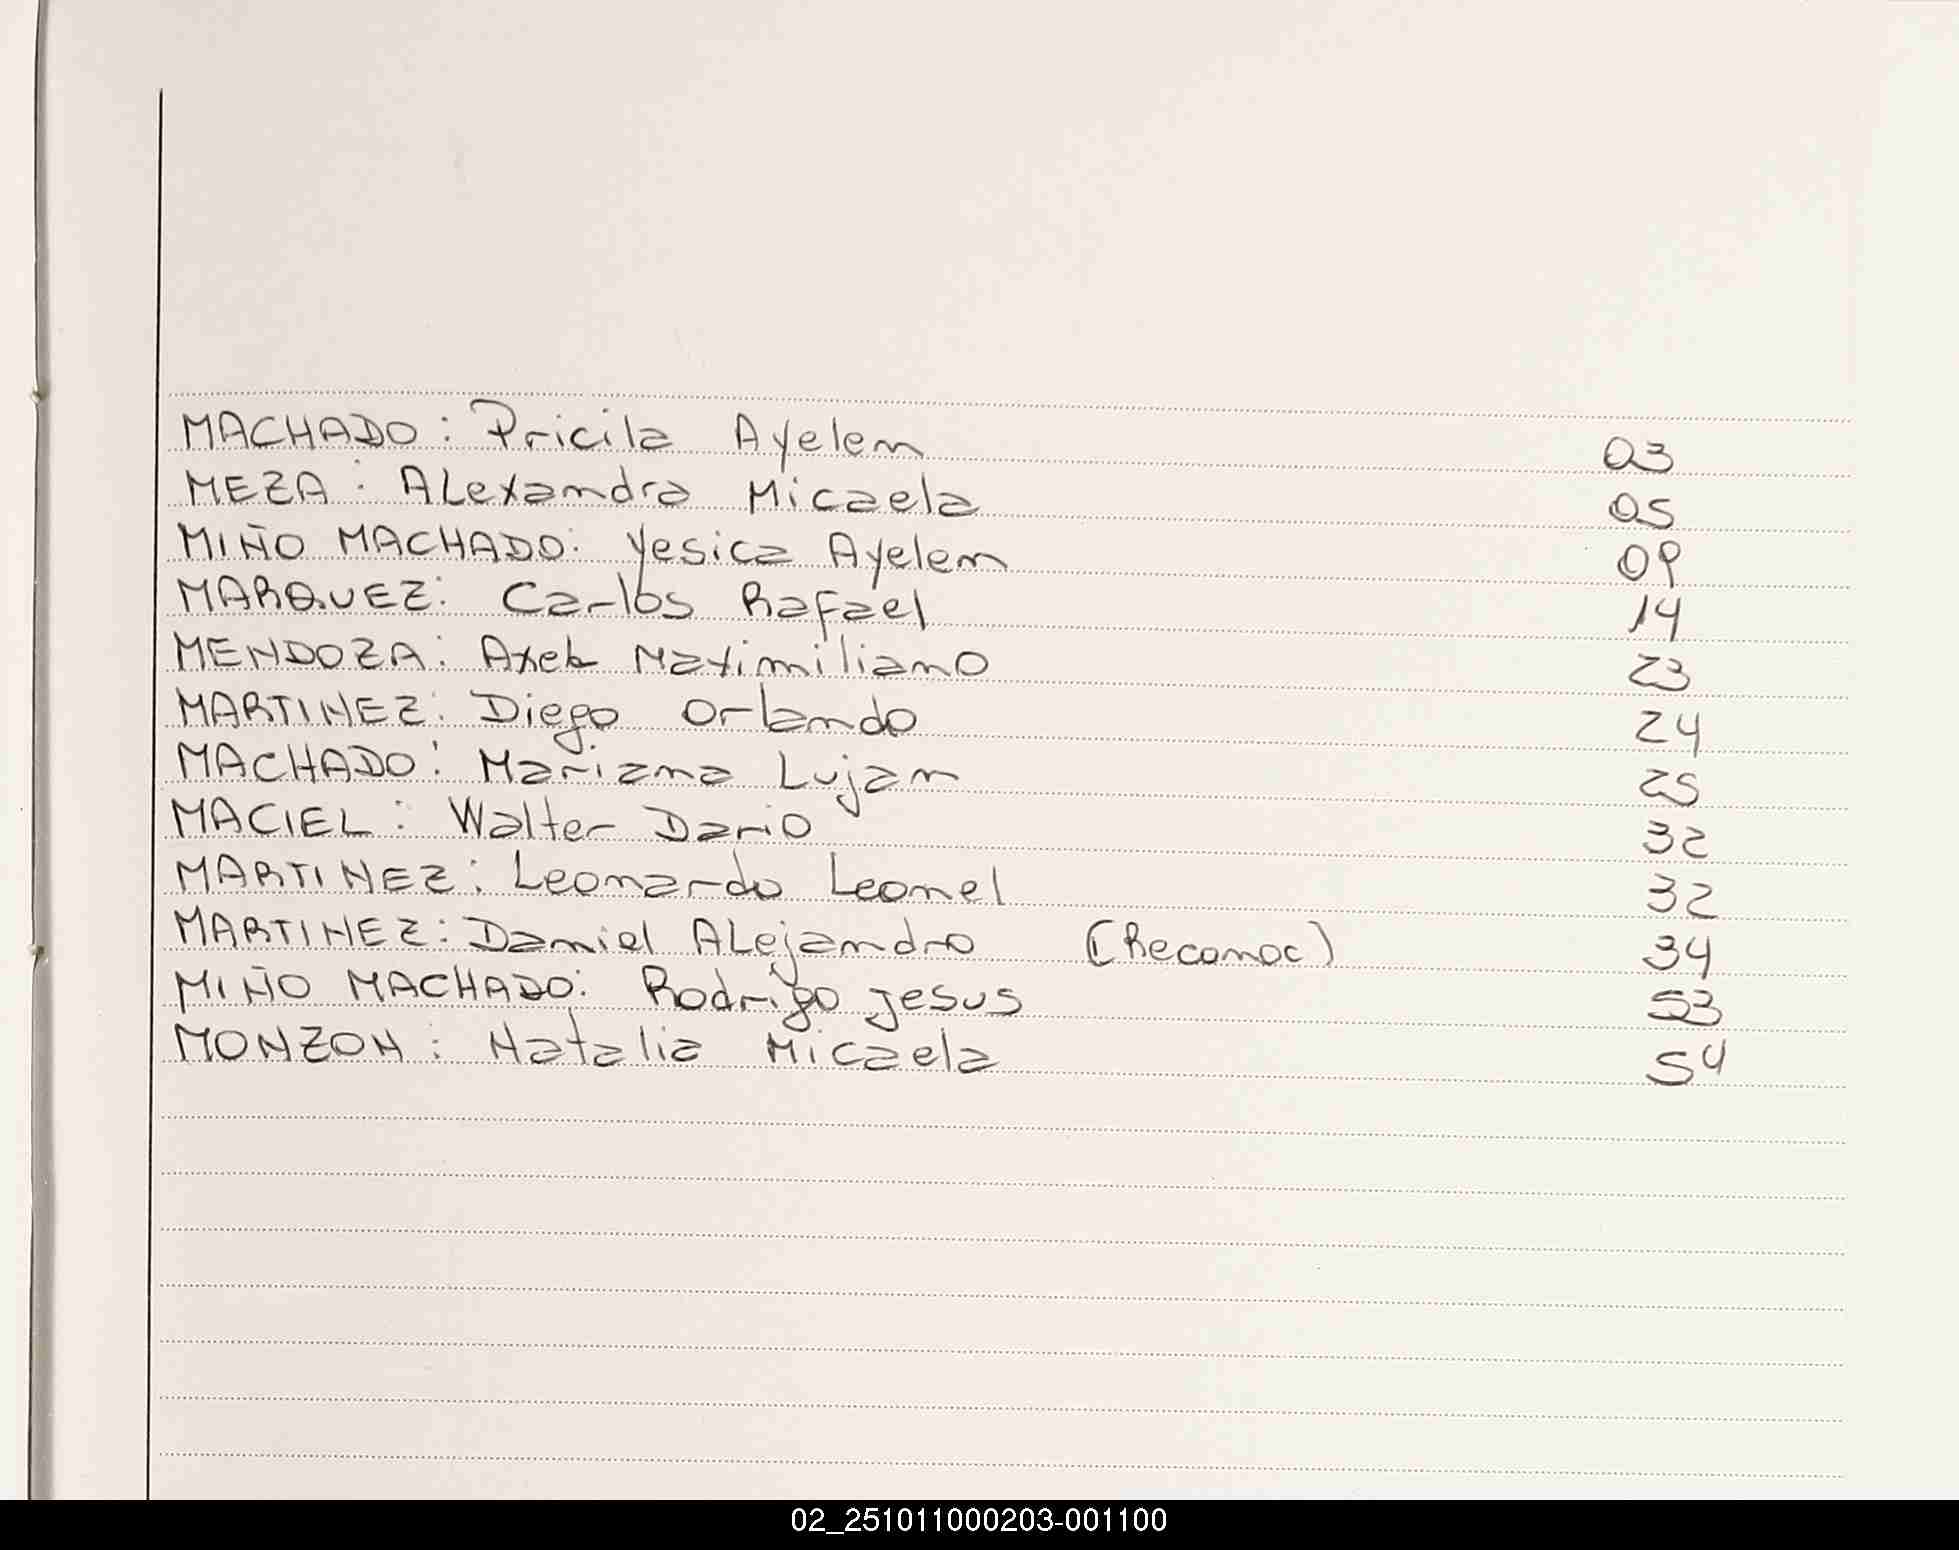 MACHADO: Pricila Ayelem 03
MEZA: Alexandra Micaela 05
MIÑO MACHADO: Yesica Ayelem 09
MARQUEZ: Carlos Rafael 14
MENDOZA: Axel Maximiliano 23
MARTINEZ: Diego Orlando 24
MACHADO: Mariana Lujan 25
MACIEL: Walter Dario 32
MARTINEZ: Leonardo Leonel 32
MARTINEZ: Daniel Alejandro (Reconoc) 34
MIÑO MACHADO: Rodrigo Jesus 53
MONZON: Natalia Micaela 54
02_251011000203-001100